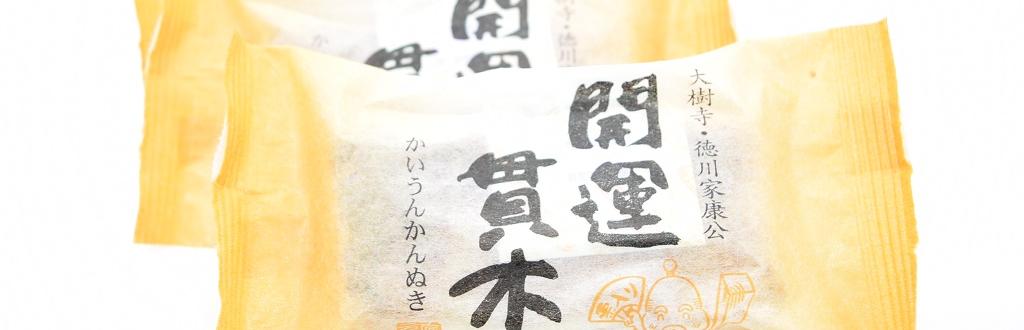 大樹寺・徳川家康公
開運
貫木
かいうんかんぬき
寺・徳川
開運
貫
か